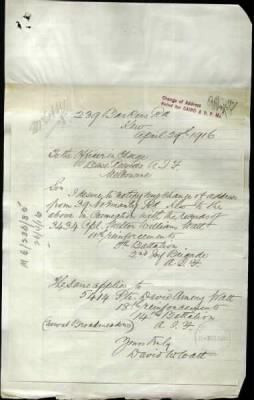 Change of Address
Noted for CAIRO & D.P.M.
239 Barkers Rd
Kew
April 29th 1916
To the Officer in Charge
Base Records A.I.F.
Melbourne
Sir,
I desire to notify my change of address
from 39 Rd Kew to the
above in connection with the records of
3434 Cpl. William Watt
11th reinforcements
8th Battalion
2nd Inf Brigade
A.I.F.
The same applies to
5464 Pte. David Watt
reinforcements
14th Battalion
A.I.F.
(now at Broadmeadows)
Yours truly
David W. Watt